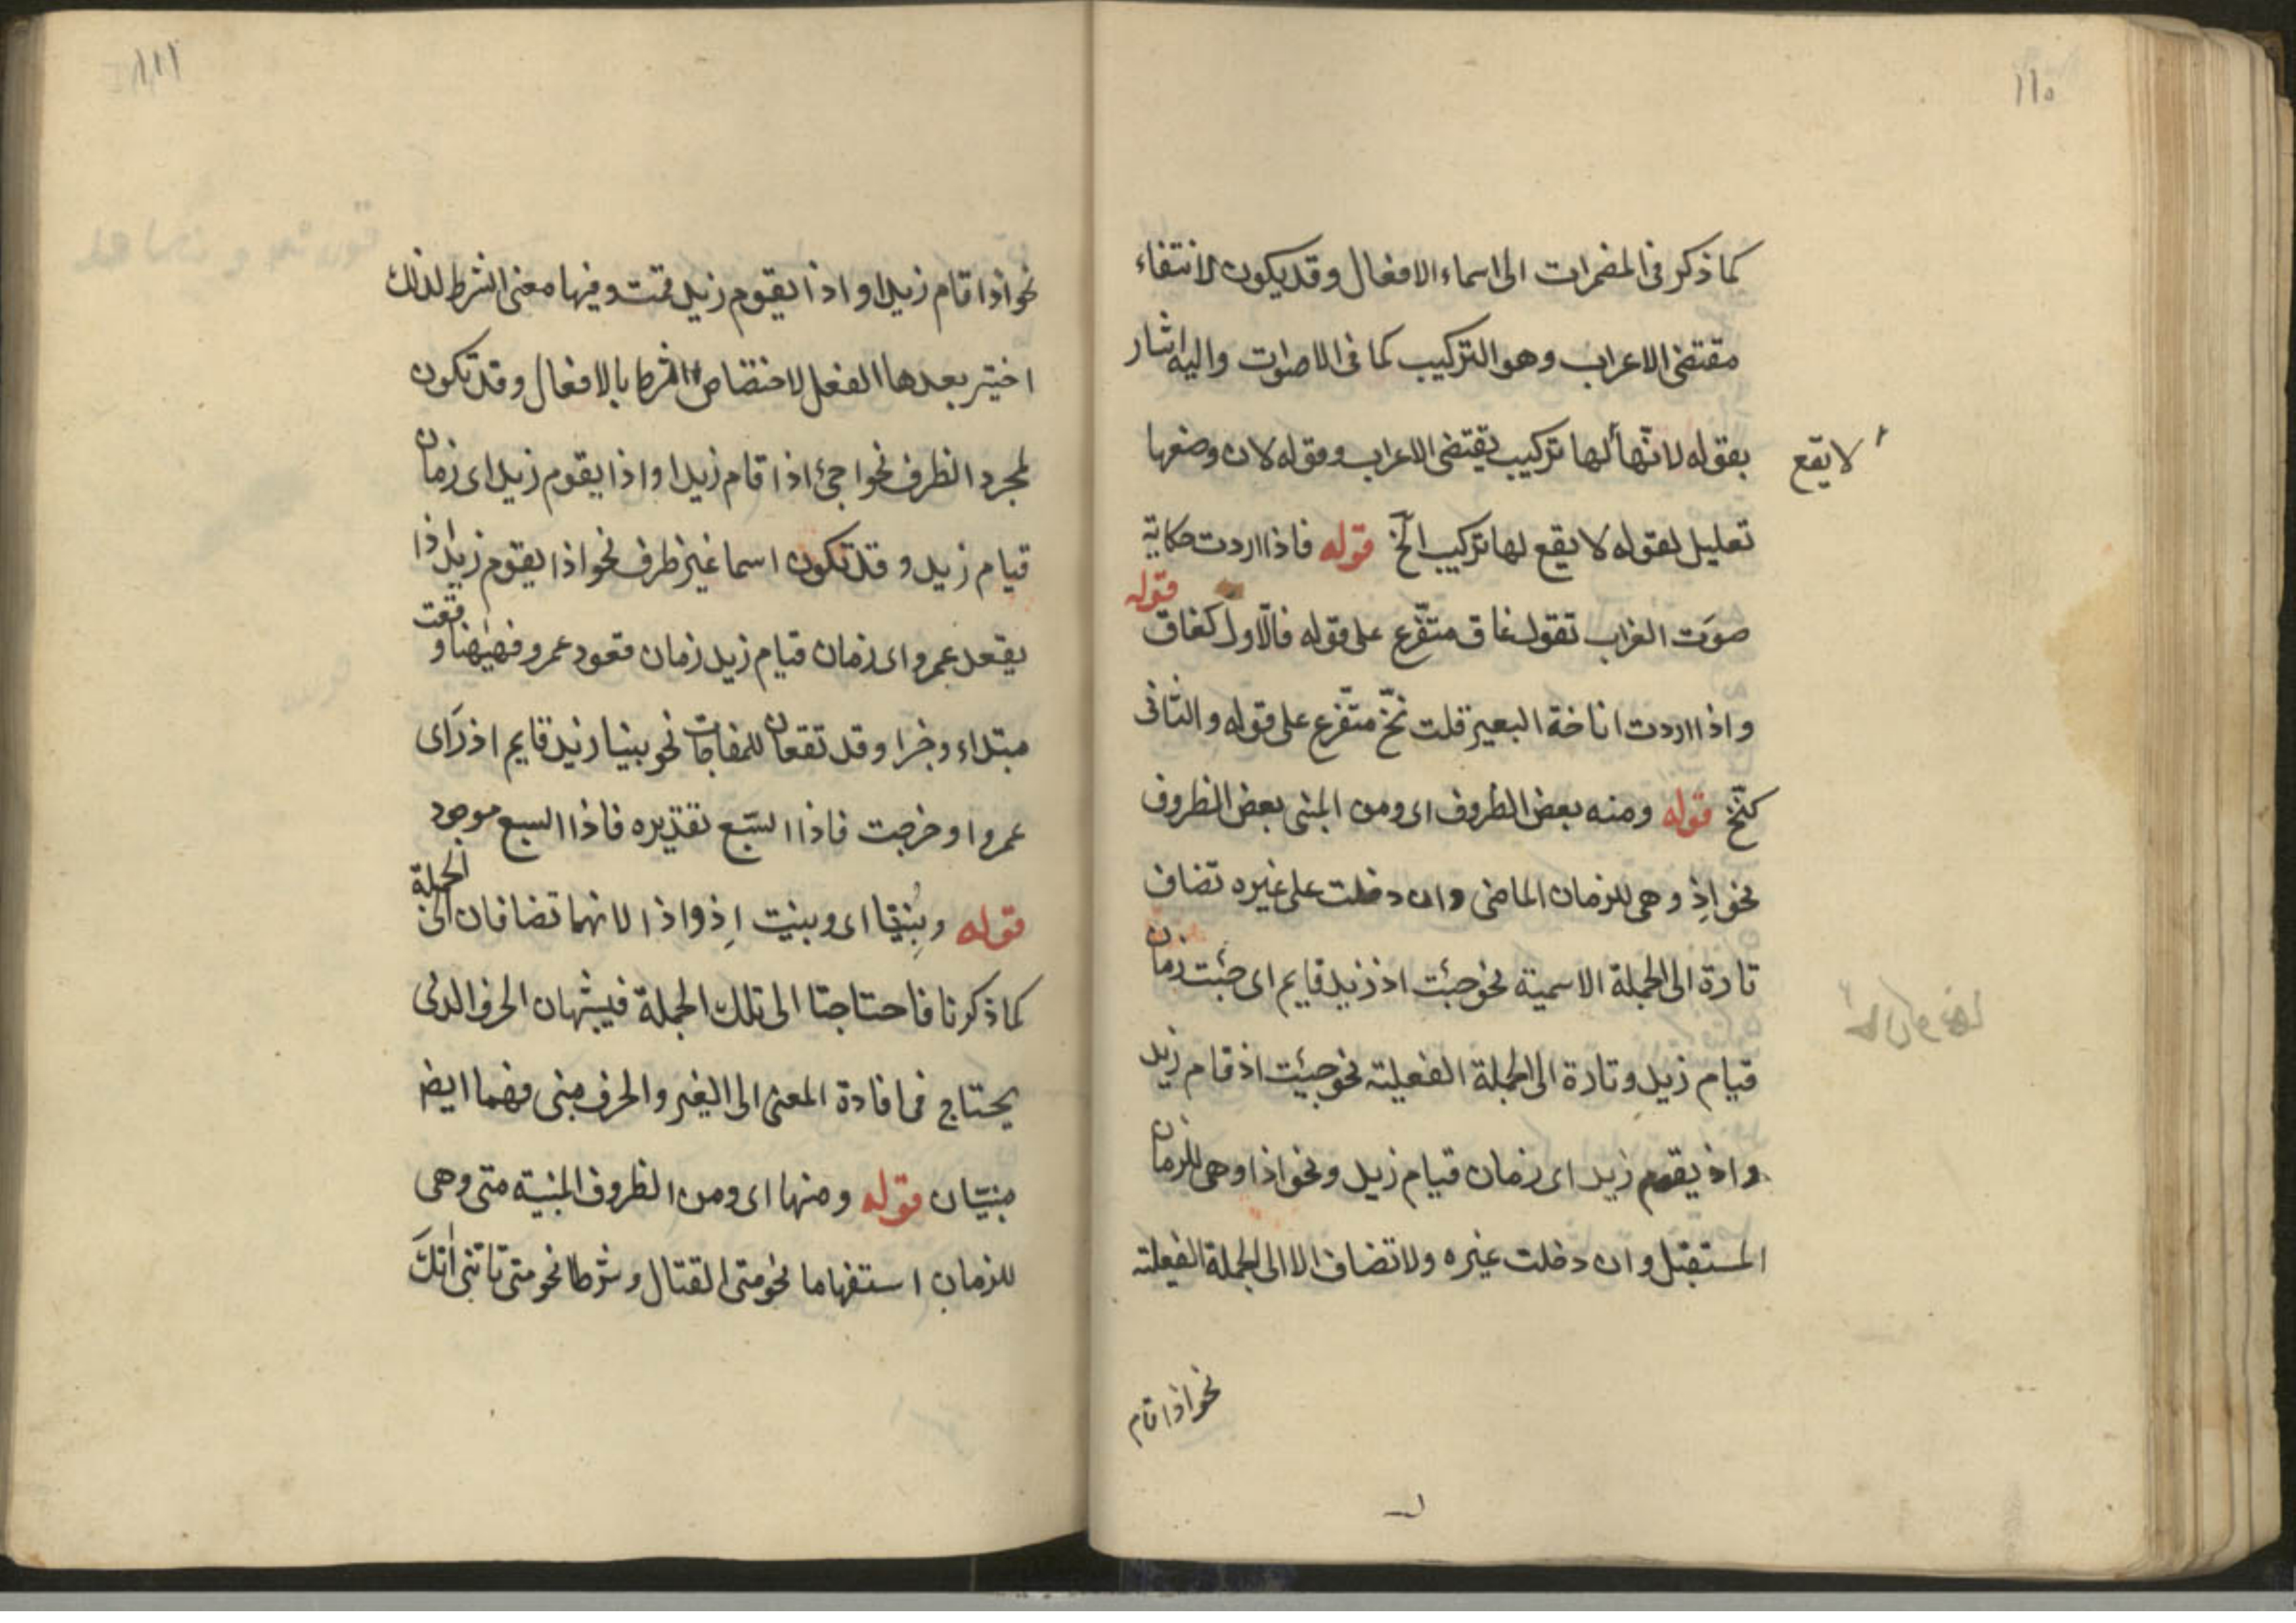 ١١٥
كما ذكر فى المضمرات الى اسماء الافعال وقد يكون لانتفاء
مقتضى الاعراب وهو التركيب كما فى الاصوات واليه اشار
بقوله لانها لها تركيب يقتضى الاعراب وقوله لان وضعها
لا يقع
تعليل لقوله لا يقع لها تركيب الخ قوله فاذا اردت حكاية
صوت الغراب تقول غاق متفرع على قوله فالاول كغاق قوله
واذا اردت اناخة البعير قلت نخ متفرع على قوله والثانى
كنخ قوله ومنه بعض الظروف اى ومن المبنى بعض الظروف
نحو اذ وهى للزمان الماضى وان دخلت على غيره تضاف
تارة الى الجملة الاسمية نحو جئت اذ زيد قايم اى جئت زمان
قيام زيد وتارة الى الجملة الفعلية نحو جئت اذ قام زيد
واذ يقوم زيد اى زمان قيام زيد ونحو اذا وهى للزمان
المستقبل وان دخلت غيره ولا تضاف الا الى الجملة الفعلية
نحو اذا قام
١١٦
نحو اذا قام زيد او اذا يقوم زيد قمت وفيها معنى الشرط لذلك
اختير بعدها الفعل لاختصاص الشرط بالافعال وقد تكون
لمجرد الظرف نحو اجئ اذا قام زيد او اذا يقوم زيد اى زمان
قيام زيد وقد تكون اسما غير ظرف نحو اذا يقوم زيد اذا
يقعد عمرو اى زمان قيام زيد زمان قعود عمرو فههنا وقعت
مبتداء وخبرا وقد تقعان للمفاجات نحو بينا زيد قايم اذ راى
عمروا وخرجت فاذا السبع تقديره فاذا السبع موجود
قوله وبنيتا اى وبنيت اذ واذا لانهما تضافان الى الجملة
كما ذكرنا فاحتاجتا الى تلك الجملة فيشبهان الحرف الذى
يحتاج فى افادة المعنى الى الغير والحرف مبنى فهما ايضا
مبنيان قوله ومنها اى ومن الظروف المبنية متى وهى
للزمان استفهاما نحو متى القتال وشرطا نحو متى تاتنى اتك